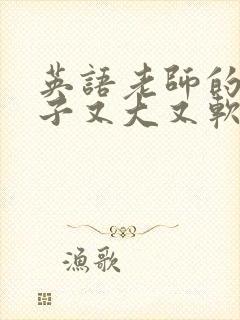 英語老師的
子又大又軟
漁歌